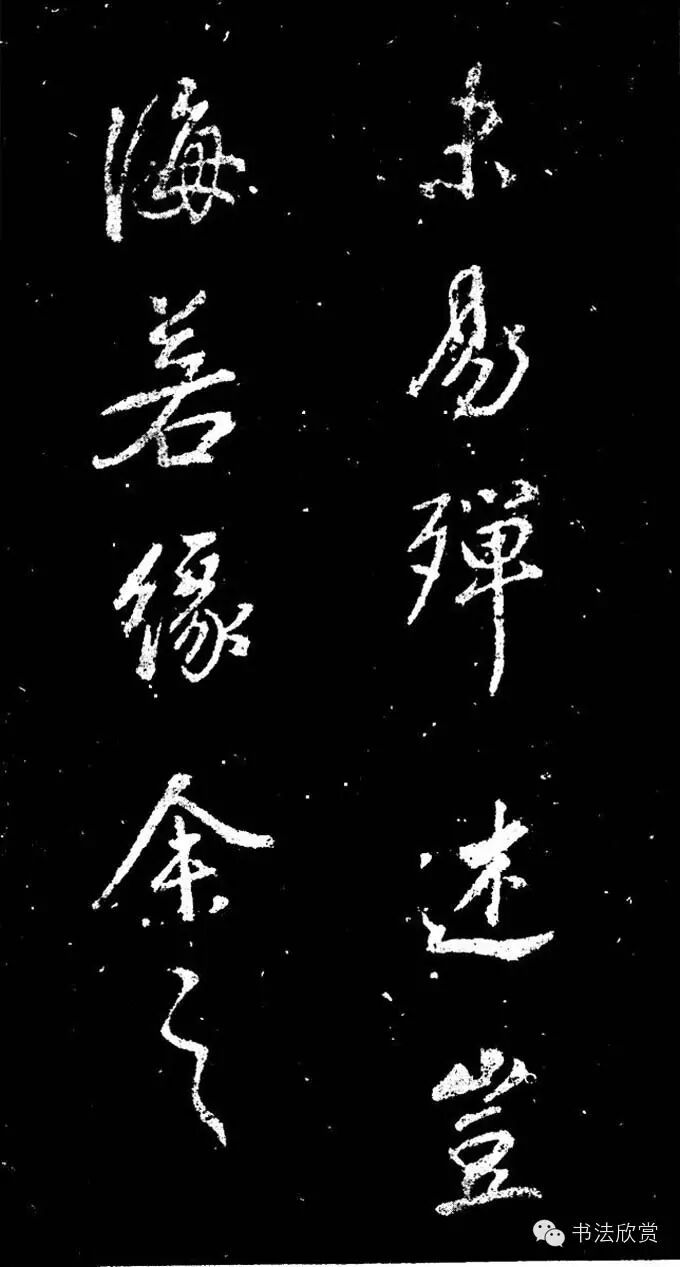 未易殫述豈
海若緣余之
书法欣赏